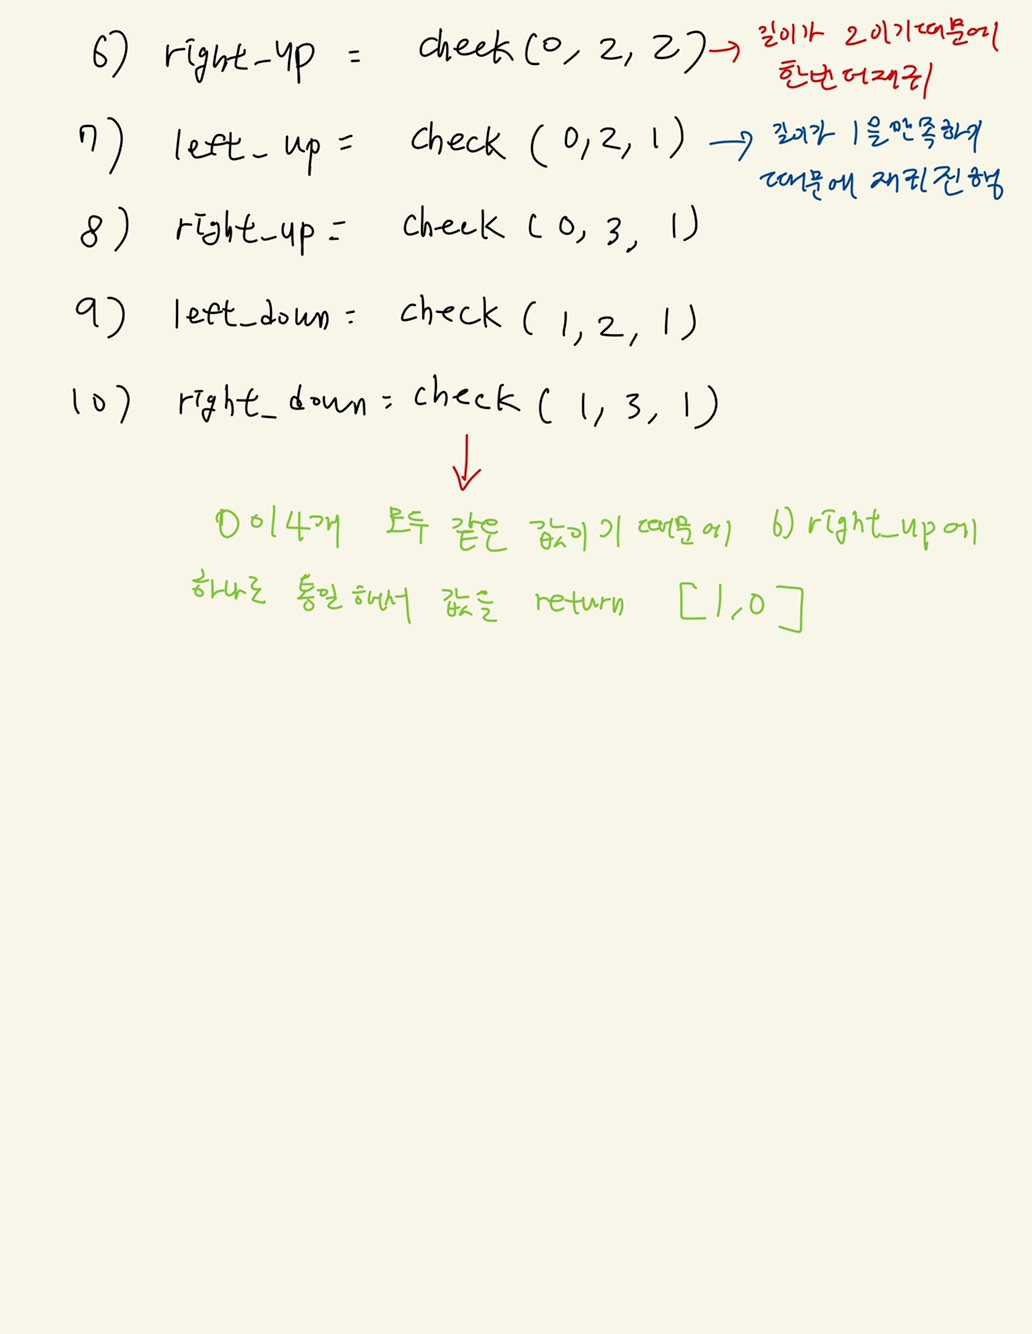 6) right_up = check(0, 2, 2) → 길이가 2이기때문에
한번더재귀
7) left_up = check (0,2,1) → 길이가 1을만족하기
때문에 재귀진행
8) right_up = check (0, 3, 1)
9) left_down = check (1,2,1)
10) right_down = check (1,3,1)
↓
0이4개 모두 같은 값이기 때문에 6) right_up에
하나로 통일해서 값을 return [1,0]